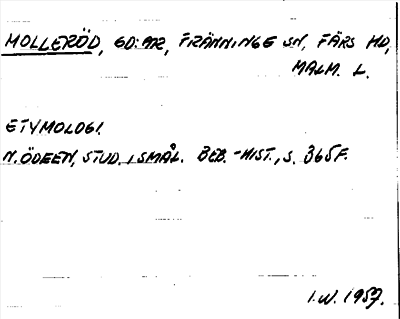 MOLLERÖD, GD:AR, FRÄNNINGE SN, FÄRS HD,
MALM. L.
ETYMOLOGI.
N. ÖDEEN, STUD. I SMÅL. BEB.-HIST., S. 365F.
I.W. 1957.